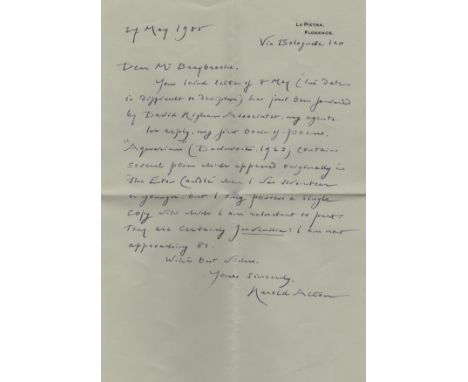 LA PIETRA,
FLORENCE.
27 May 1985
Via Bolognese 120
Dear Mr Braybrooke,
Your kind letter of 8 May (the date
is difficult to decipher) has just been forwarded
by David Higham Associates, my agents.
In reply, my first book of poems,
"Aquarium" (Duckworth, 1923) contains
several poems which appeared originally in
"The Eton Candle" when I was seventeen
or younger, but I only possess a single
copy with which I am reluctant to part.
They are certainly Juvenilia! I am now
approaching 81.
With best wishes,
Yours sincerely,
Harold Acton